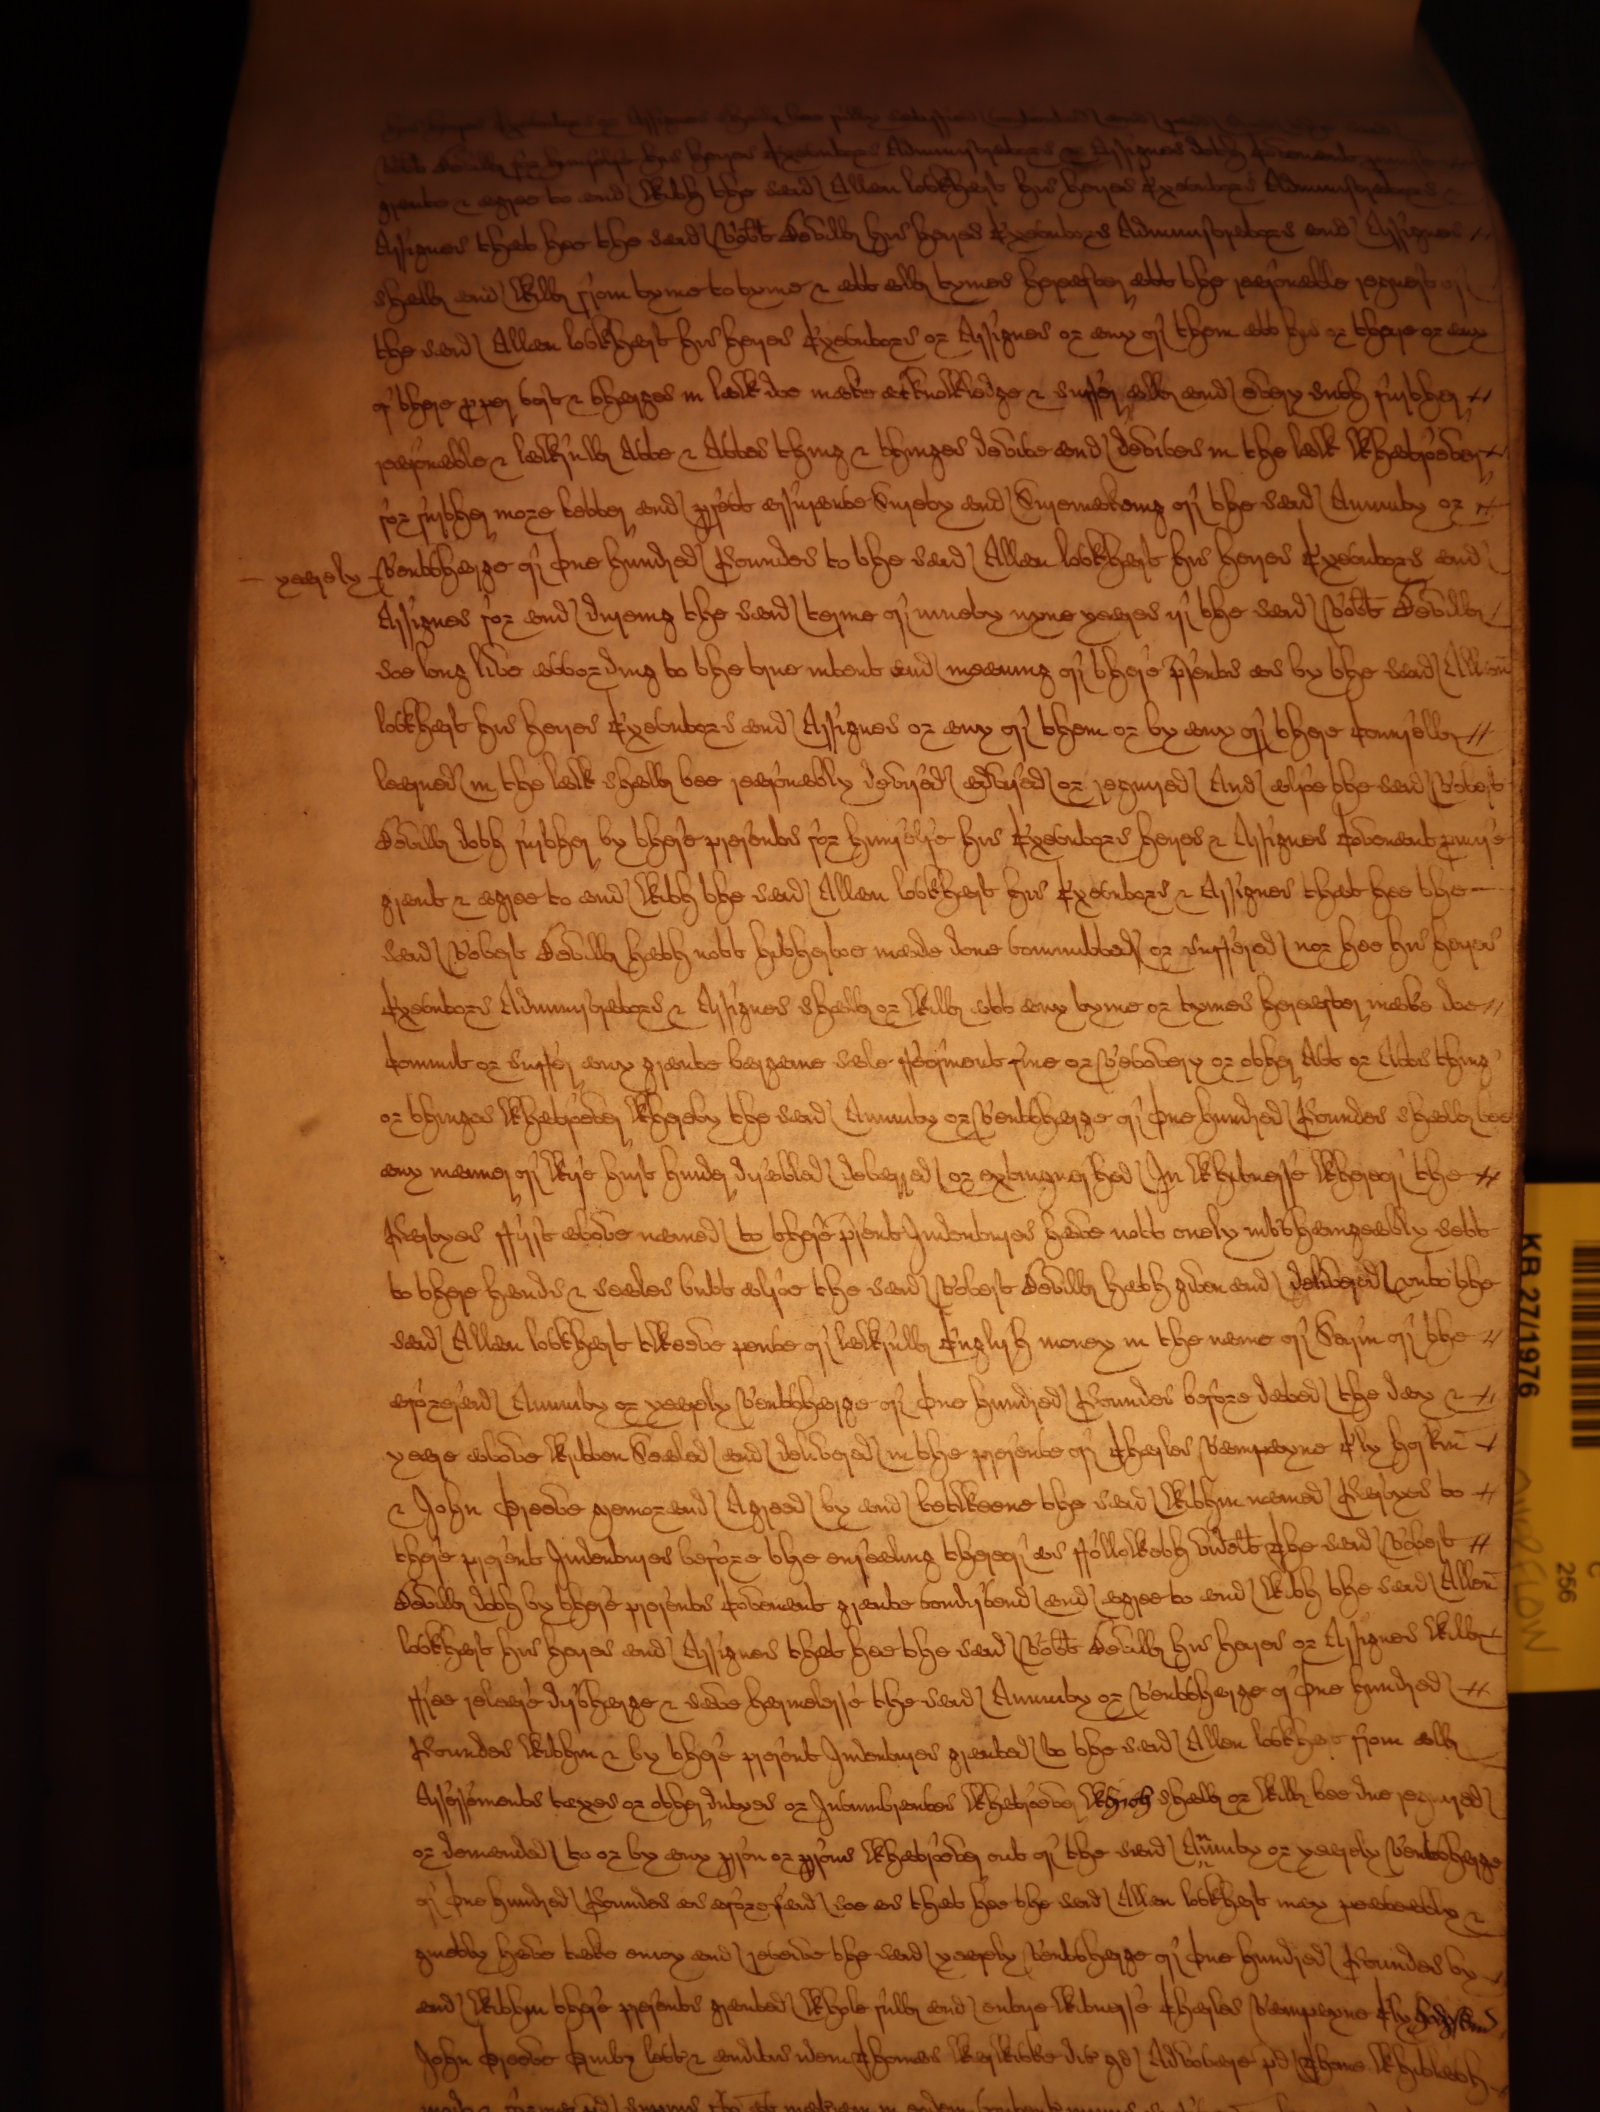 his heyres Executors or Assignes shalbe fully satisfied
Robt Sevill for himselfe his heyres Executors Administrators & Assignes doth Covenant
graunte & agree to and with the said Allen lockhart his heyres Executors Administrators &
Assignes that hee the said Robt Sevill his heyres Executors Administrators and Assignes
shall and will from tyme to tyme & att all tymes hereafter att the reasonable request of
the said Allen lockhart his heyres Executors or Assignes or any of them att his or there or any
of there pper cost & charges in law doe make acknowledge & suffer all and every such further
reasonable & lawfull Acte & Actes thing & thinges device and devices in the law whatsoever
for further more better and pfect assurance Surety and Suremakeing of the said Annuity or
yearely Rentcharge of One hundred Poundes to the said Allen lockhart his heyres Executors and
Assignes for and dureing the said terme of ninety nyne yeares if the said Robt Sevill
soe long live according to the true intent and meaning of these psents as by the said Allen
lockhart his heyres Executors and Assignes or any of them or by any of there Counsell
learned in the law shall bee reasonably devised advised or required And alsoe the said Robert
Sevill doth further by these presents for himselfe his Executors heyres & Assignes Covenant pmise
graunt & agree to and with the said Allen lockhart his Executors & Assignes that hee the
said Robert Sevill hath nott hithertoe made done committed or suffered nor hee his heyres
Executors Administrators & Assignes shall or will att any tyme or tymes hereafter make doe
Commit or suffer any graunte bargaine sale ffeofment fine or Recovery or other Act or Acts thing
or thinges whatsoever whereby the said Annuity or Rentcharge of One hundred Poundes shall bee
any manner of wise hurt hinder disabled debarred or extinguished In whitnesse whereof the
Partyes ffirst above named to these psent Indentures have nott onely intchangeably sett
to there hands & seales butt alsoe the said Robert Sevill hath given and delivered unto the
said Allen lockhart twelve pence of lawfull English money in the name of Seisin of the
aforesaid Annuity or yearely Rentcharge of One hundred Poundes before dated the day &
yeare above written Sealed and delivered in the presence of Charles Rampayne Ely
& John Greene memorand Agreed by and betweene the said within named Partyes to
these present Indentures before the ensealing thereof as ffolloweth videlt The said Robert
Sevill doth by these presents Covenant graunte condiscend and agree to and with the said Allen
lockhart his heyres and Assignes that hee the said Robt Sevill his heyres or Assignes will
ffree release discharge & save harmelesse the said Annuity or Rentcharge of One hundred
Poundes within & by these present Indentures graunted to the said Allen lockhart from all
Assessements taxes or other dutyes or Incumbrances whatsoever which shall or will bee due required
or demanded to or by any pson or psons whatsoever out of the said Annuity or yearely Rentcharge
of One hundred Poundes as aforesaid soe as that hee the said Allen lockhart may peaceably &
quietly have take enioy and receive the said yearely Rentcharge of One hundred Poundes by
and within these presents graunted whole full and entyre Witnesse Charles Rampayne Ely
John Greene Quibz lect & auditis idem Thomas dic qd
KB 27/1976
256
OVERFLOW